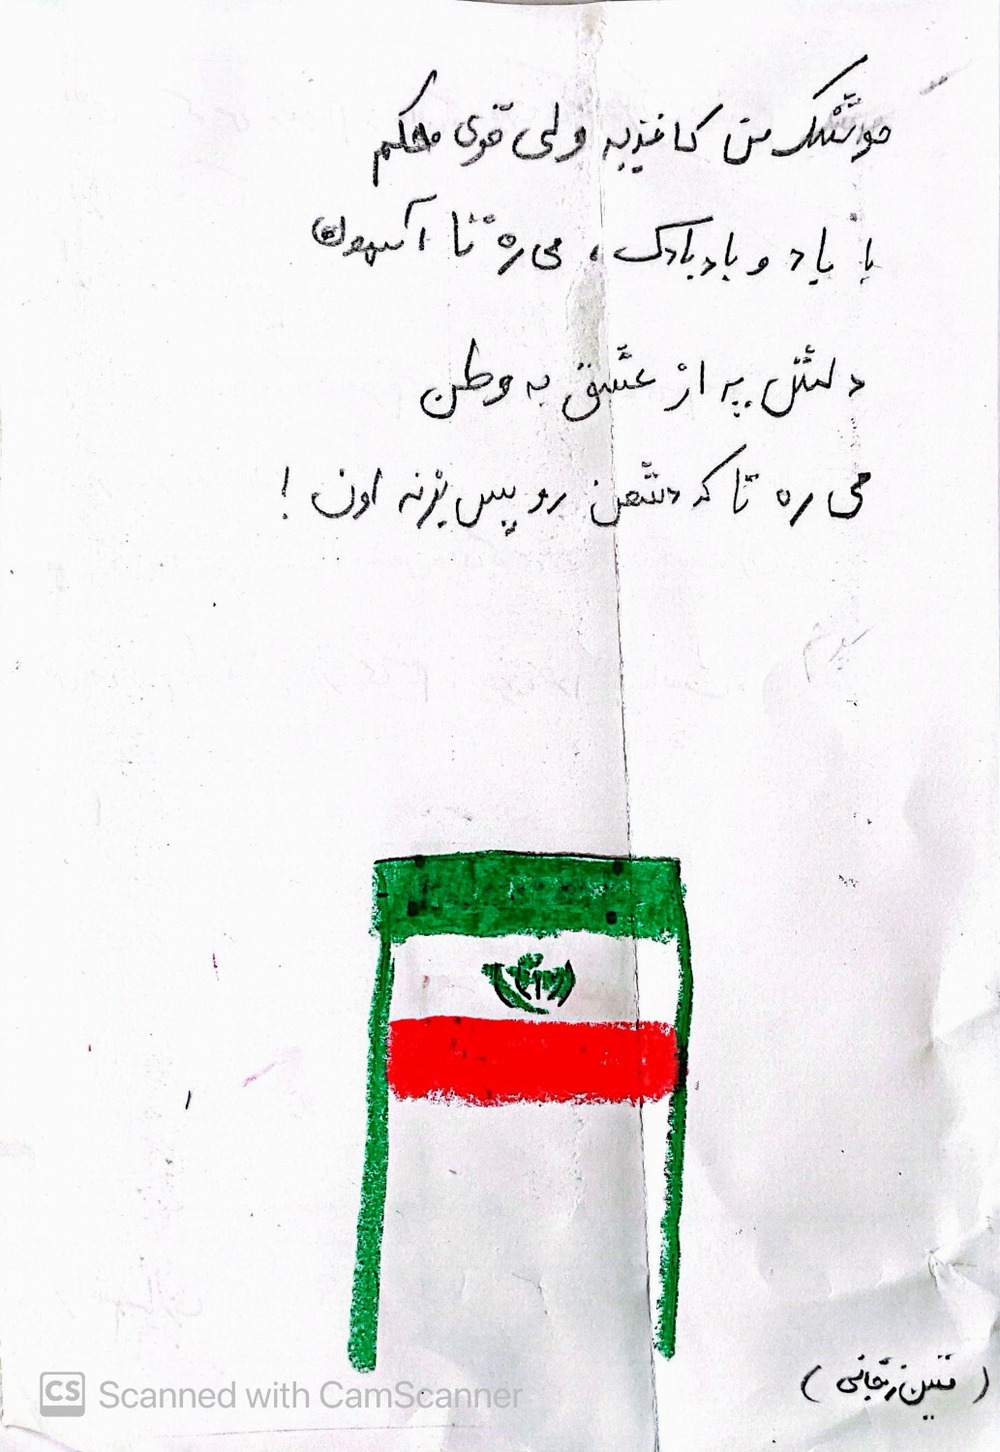 موشک من کاغذیه ولی قوی محکم
با باد و بادبادک، می ره تا آسمون
دلش پره از عشق به وطن
می ره تا که دشمن رو پس بزنه اون!
(متین زنجانی)
CS Scanned with CamScanner